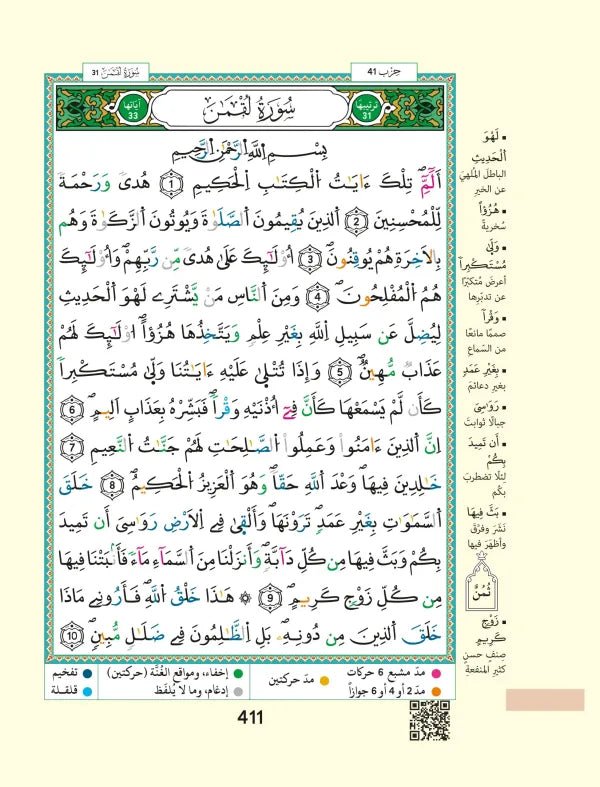 حِزْب 41
سُورَةُ لُقْمَٰن 31
تَرتيبها 31
سُورَةُ لُقْمَٰن
آياتها 33
بِسْمِ اللَّهِ الرَّحْمَٰنِ الرَّحِيمِ
أَلَٓمِّٓۖ تِلْكَ ءَايَٰتُ الْكِتَٰبِ الْحَكِيمِ 1 هُدىٗ وَرَحْمَةٗ
لِّلْمُحْسِنِينَ 2 الذِينَ يُقِيمُونَ الصَّلَوٰةَ وَيُوتُونَ الزَّكَوٰةَ وَهُم
بِالَاخِرَةِ هُمْ يُوقِنُونَۖ 3 أُوْلَٰٓئِكَ عَلَىٰ هُدىٗ مِّن رَّبِّهِمْۖ وَأُوْلَٰٓئِكَ
هُمُ الْمُفْلِحُونَۖ 4 وَمِنَ النَّاسِ مَنْ يَّشْتَرِے لَهْوَ الْحَدِيثِ
لِيُضِلَّ عَن سَبِيلِ اِللَّهِ بِغَيْرِ عِلْمٖ وَيَتَّخِذُهَا هُزُؤاًۖ أُوْلَٰٓئِكَ لَهُمْ
عَذَابٞ مُّهِينٞۖ 5 وَإِذَا تُتْلَىٰ عَلَيْهِ ءَايَٰتُنَا وَلَّىٰ مُسْتَكْبِراٗ
كَأَن لَّمْ يَسْمَعْهَا كَأَنَّ فِےٓ أُذْنَيْهِ وَقْراٗۖ فَبَشِّرْهُ بِعَذَابٍ اَلِيمٍۖ 6
اِنَّ الذِينَ ءَامَنُواْ وَعَمِلُواْ الصَّٰلِحَٰتِ لَهُمْ جَنَّٰتُ النَّعِيمِ 7
خَٰلِدِينَ فِيهَا وَعْدَ اَللَّهِ حَقّاٗۖ وَهُوَ الْعَزِيزُ الْحَكِيمُۖ 8 خَلَقَ
السَّمَٰوَٰتِ بِغَيْرِ عَمَدٖ تَرَوْنَهَاۖ وَأَلْقَىٰ فِے اِلَارْضِ رَوَٰسِيَ أَن تَمِيدَ
بِكُمْ وَبَثَّ فِيهَا مِن كُلِّ دَآبَّةٖۖ وَأَنزَلْنَا مِنَ السَّمَآءِ مَآءٗ فَأَنۢبَتْنَا فِيهَا
مِن كُلِّ زَوْجٖ كَرِيمٍۖ 9 ۞ هَٰذَا خَلْقُ اُللَّهِۖ فَأَرُونِے مَاذَا
خَلَقَ اَلذِينَ مِن دُونِهِۦۖ بَلِ اِلظَّٰلِمُونَ فِے ضَلَٰلٖ مُّبِينٖۖ 10
▪ لَهْوَ
الْحَدِيثِ
الباطلَ المُلهيَ
عن الخيرِ
▪ هُزُؤاً
سُخريةً
▪ وَلَّىٰ
مُسْتَكْبِراٗ
أعرضَ مُتكبّرًا
عن تدبّرِها
▪ وَقْراٗ
صممًا مانعًا
من السّماعِ
▪ بِغَيْرِ عَمَدٖ
بغيرِ دعائمَ
▪ رَوَٰسِيَ
جبالًا ثوابتَ
▪ أَن تَمِيدَ
بِكُمْ
لئلّا تضطربَ
بكُم
▪ بَثَّ فِيهَا
نَشَر وفرّقَ
وأظهَرَ فيها
ثُمُنْ
▪ زَوْجٖ
كَرِيمٍ
صِنفٍ حسنٍ
كثيرِ المنفعةِ
مدّ مشبع 6 حركات
مدّ 2 أو 4 أو 6 جوازاً
مدّ حركتين
إخفاء، ومواقع الغُنَّة (حركتين)
إدغام، وما لا يُلفَظ
تفخيم
قلقلة
411